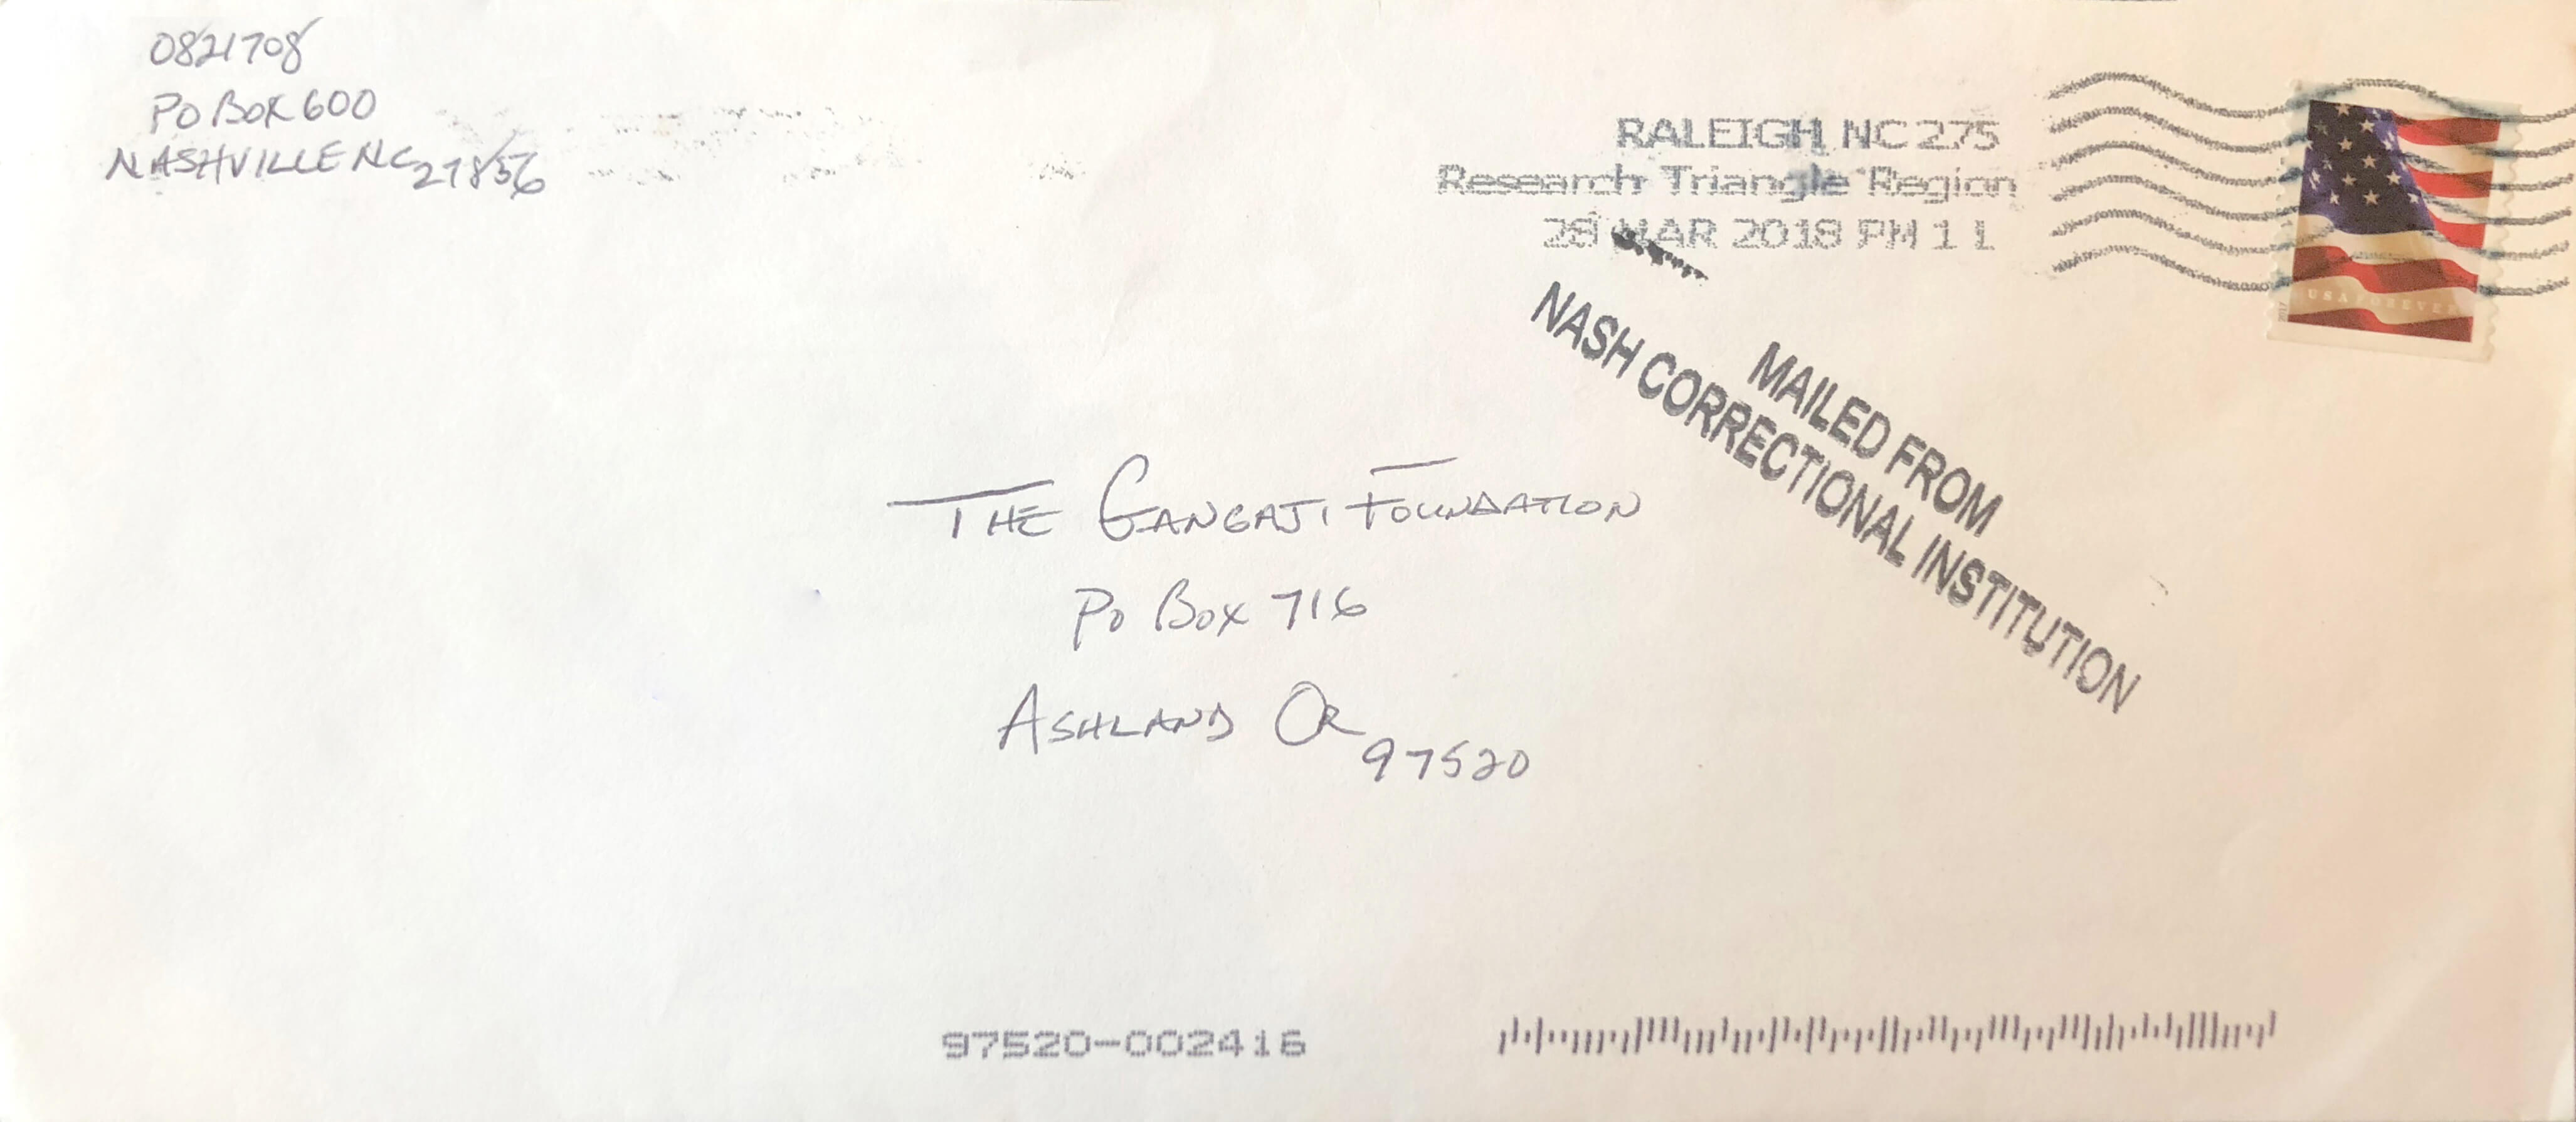 0821708
PO BOX 600
NASHVILLE NC 27856
RALEIGH NC 275
Research Triangle Region
28 MAR 2018 PM 1 L
USA FOREVER
MAILED FROM
NASH CORRECTIONAL INSTITUTION
THE GANGAJI FOUNDATION
PO BOX 716
ASHLAND OR 97520
97520-002416